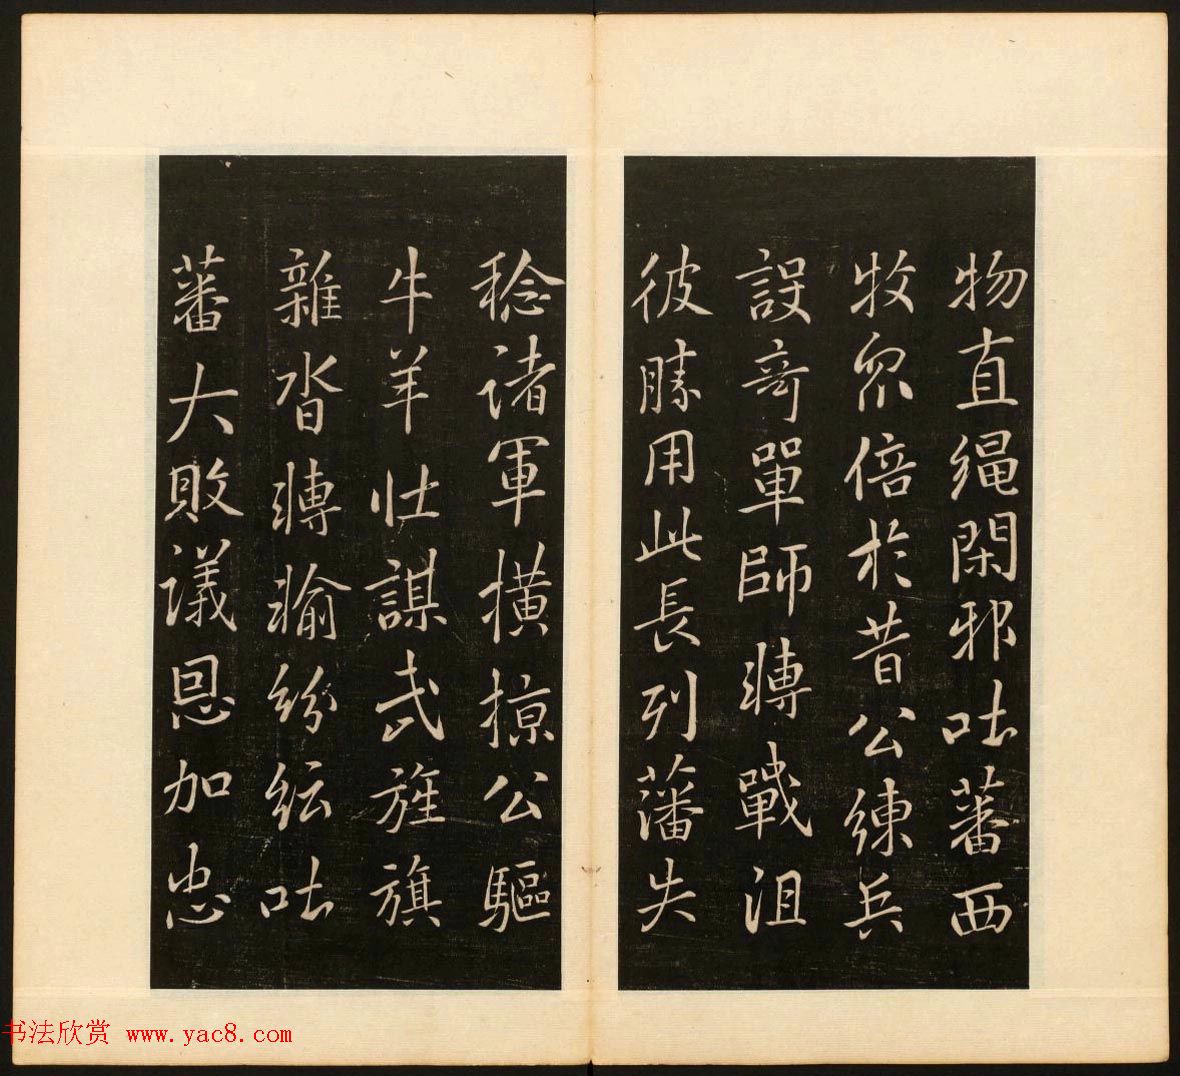 物直绳閑邪吐蕃西
牧众倍於昔公練兵
設奇單師轉戰沮
彼勝用此長列藩失
稔诸軍撗掠公驅
牛羊壮謀武旌旗
雜沓轉輸紛紜吐
蕃大敗議恩加忠
书法欣赏 www.yac8.com